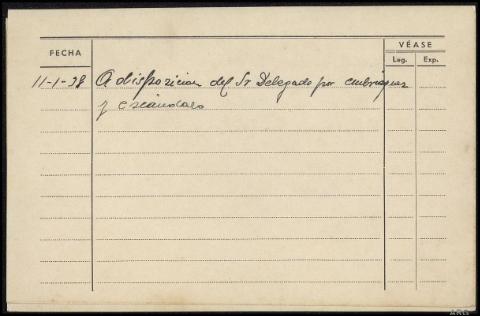 FECHA
VÉASE
Leg. Exp.
11-1-38 A disposicion del Sr Delegado por embriaguez
y escandalo